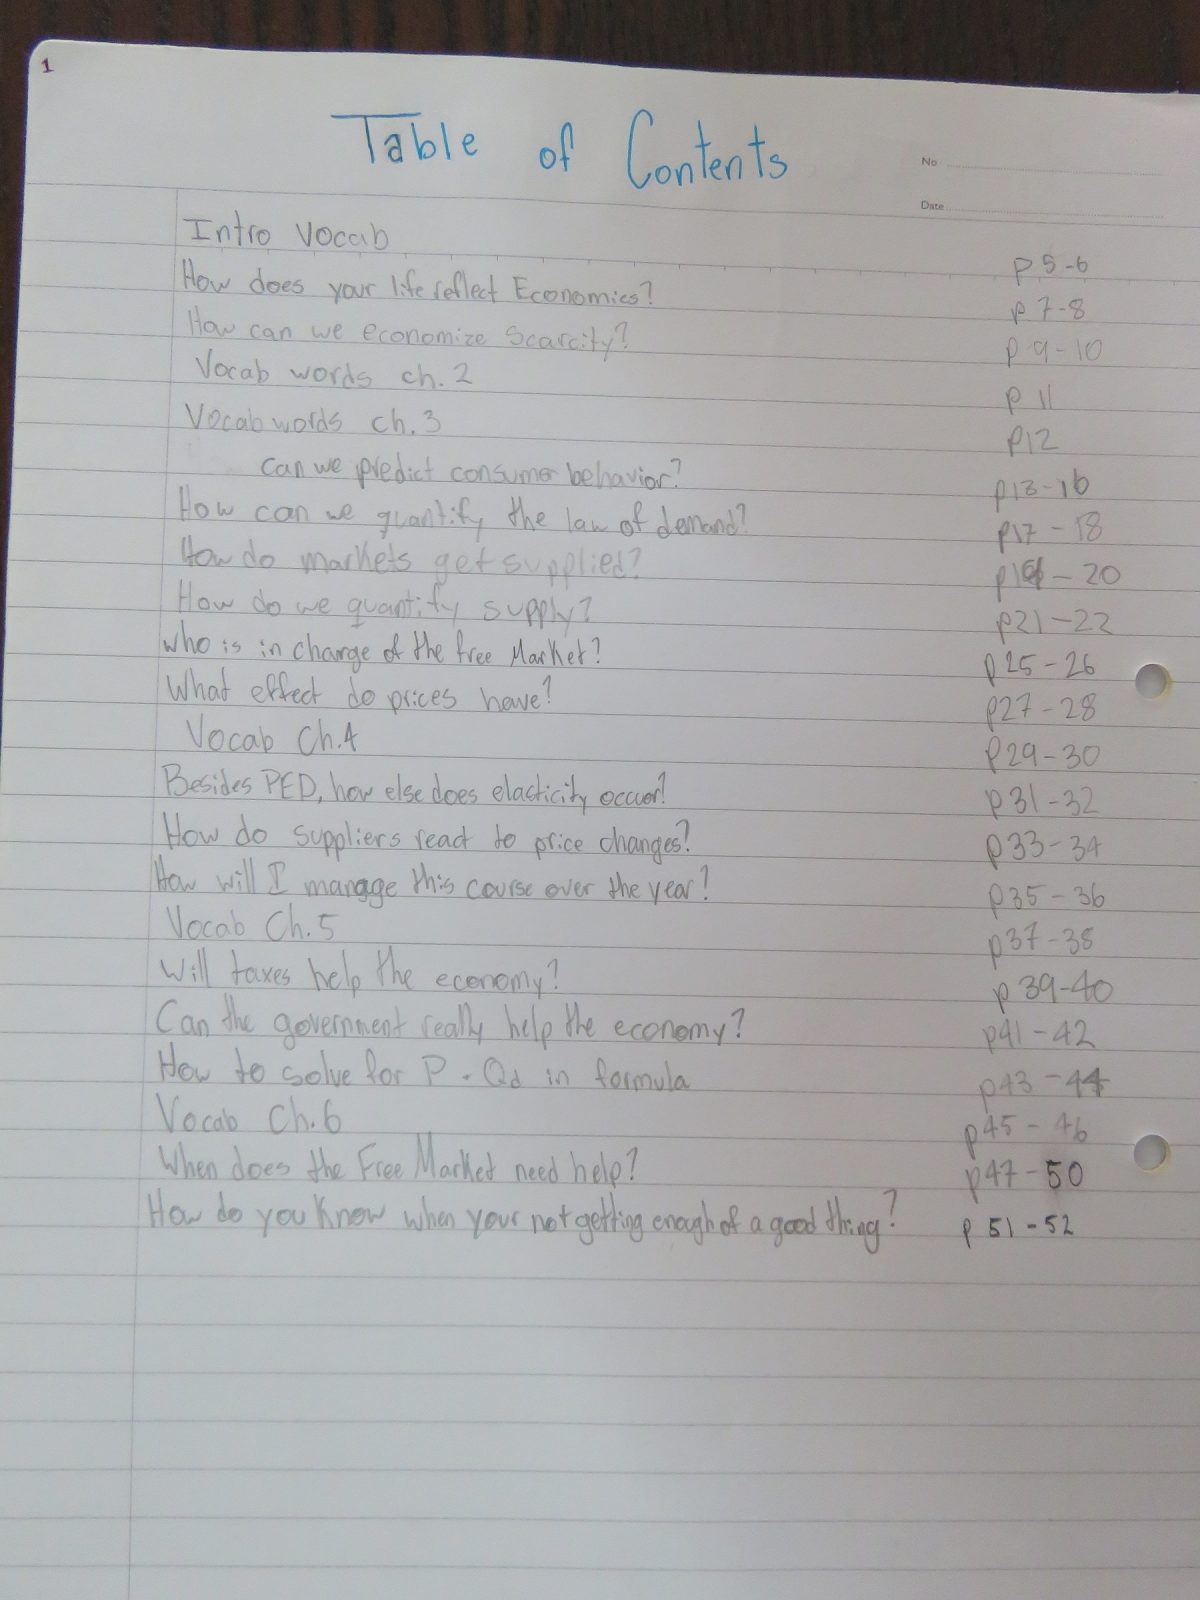 1
Table of Contents
No
Date
Intro Vocab p 5-6
How does your life reflect Economics? p 7-8
How can we economize Scarcity? p 9-10
Vocab words ch. 2 p 11
Vocab words ch. 3 p12
Can we predict consumer behavior? p13-16
How can we quantify the law of demand? p17-18
How do markets get supplied? p19-20
How do we quantify supply? p21-22
Who is in charge of the free Market? p25-26
What effect do prices have? p27-28
Vocab Ch.4 p29-30
Besides PED, how else does elasticity occur? p31-32
How do suppliers react to price changes? p33-34
How will I manage this course over the year? p35-36
Vocab Ch.5 p37-38
Will taxes help the economy? p 39-40
Can the government really help the economy? p41-42
How to solve for P - Qd in formula p43-44
Vocab Ch.6 p45-46
When does the Free Market need help? p47-50
How do you know when your not getting enough of a good thing? p 51-52